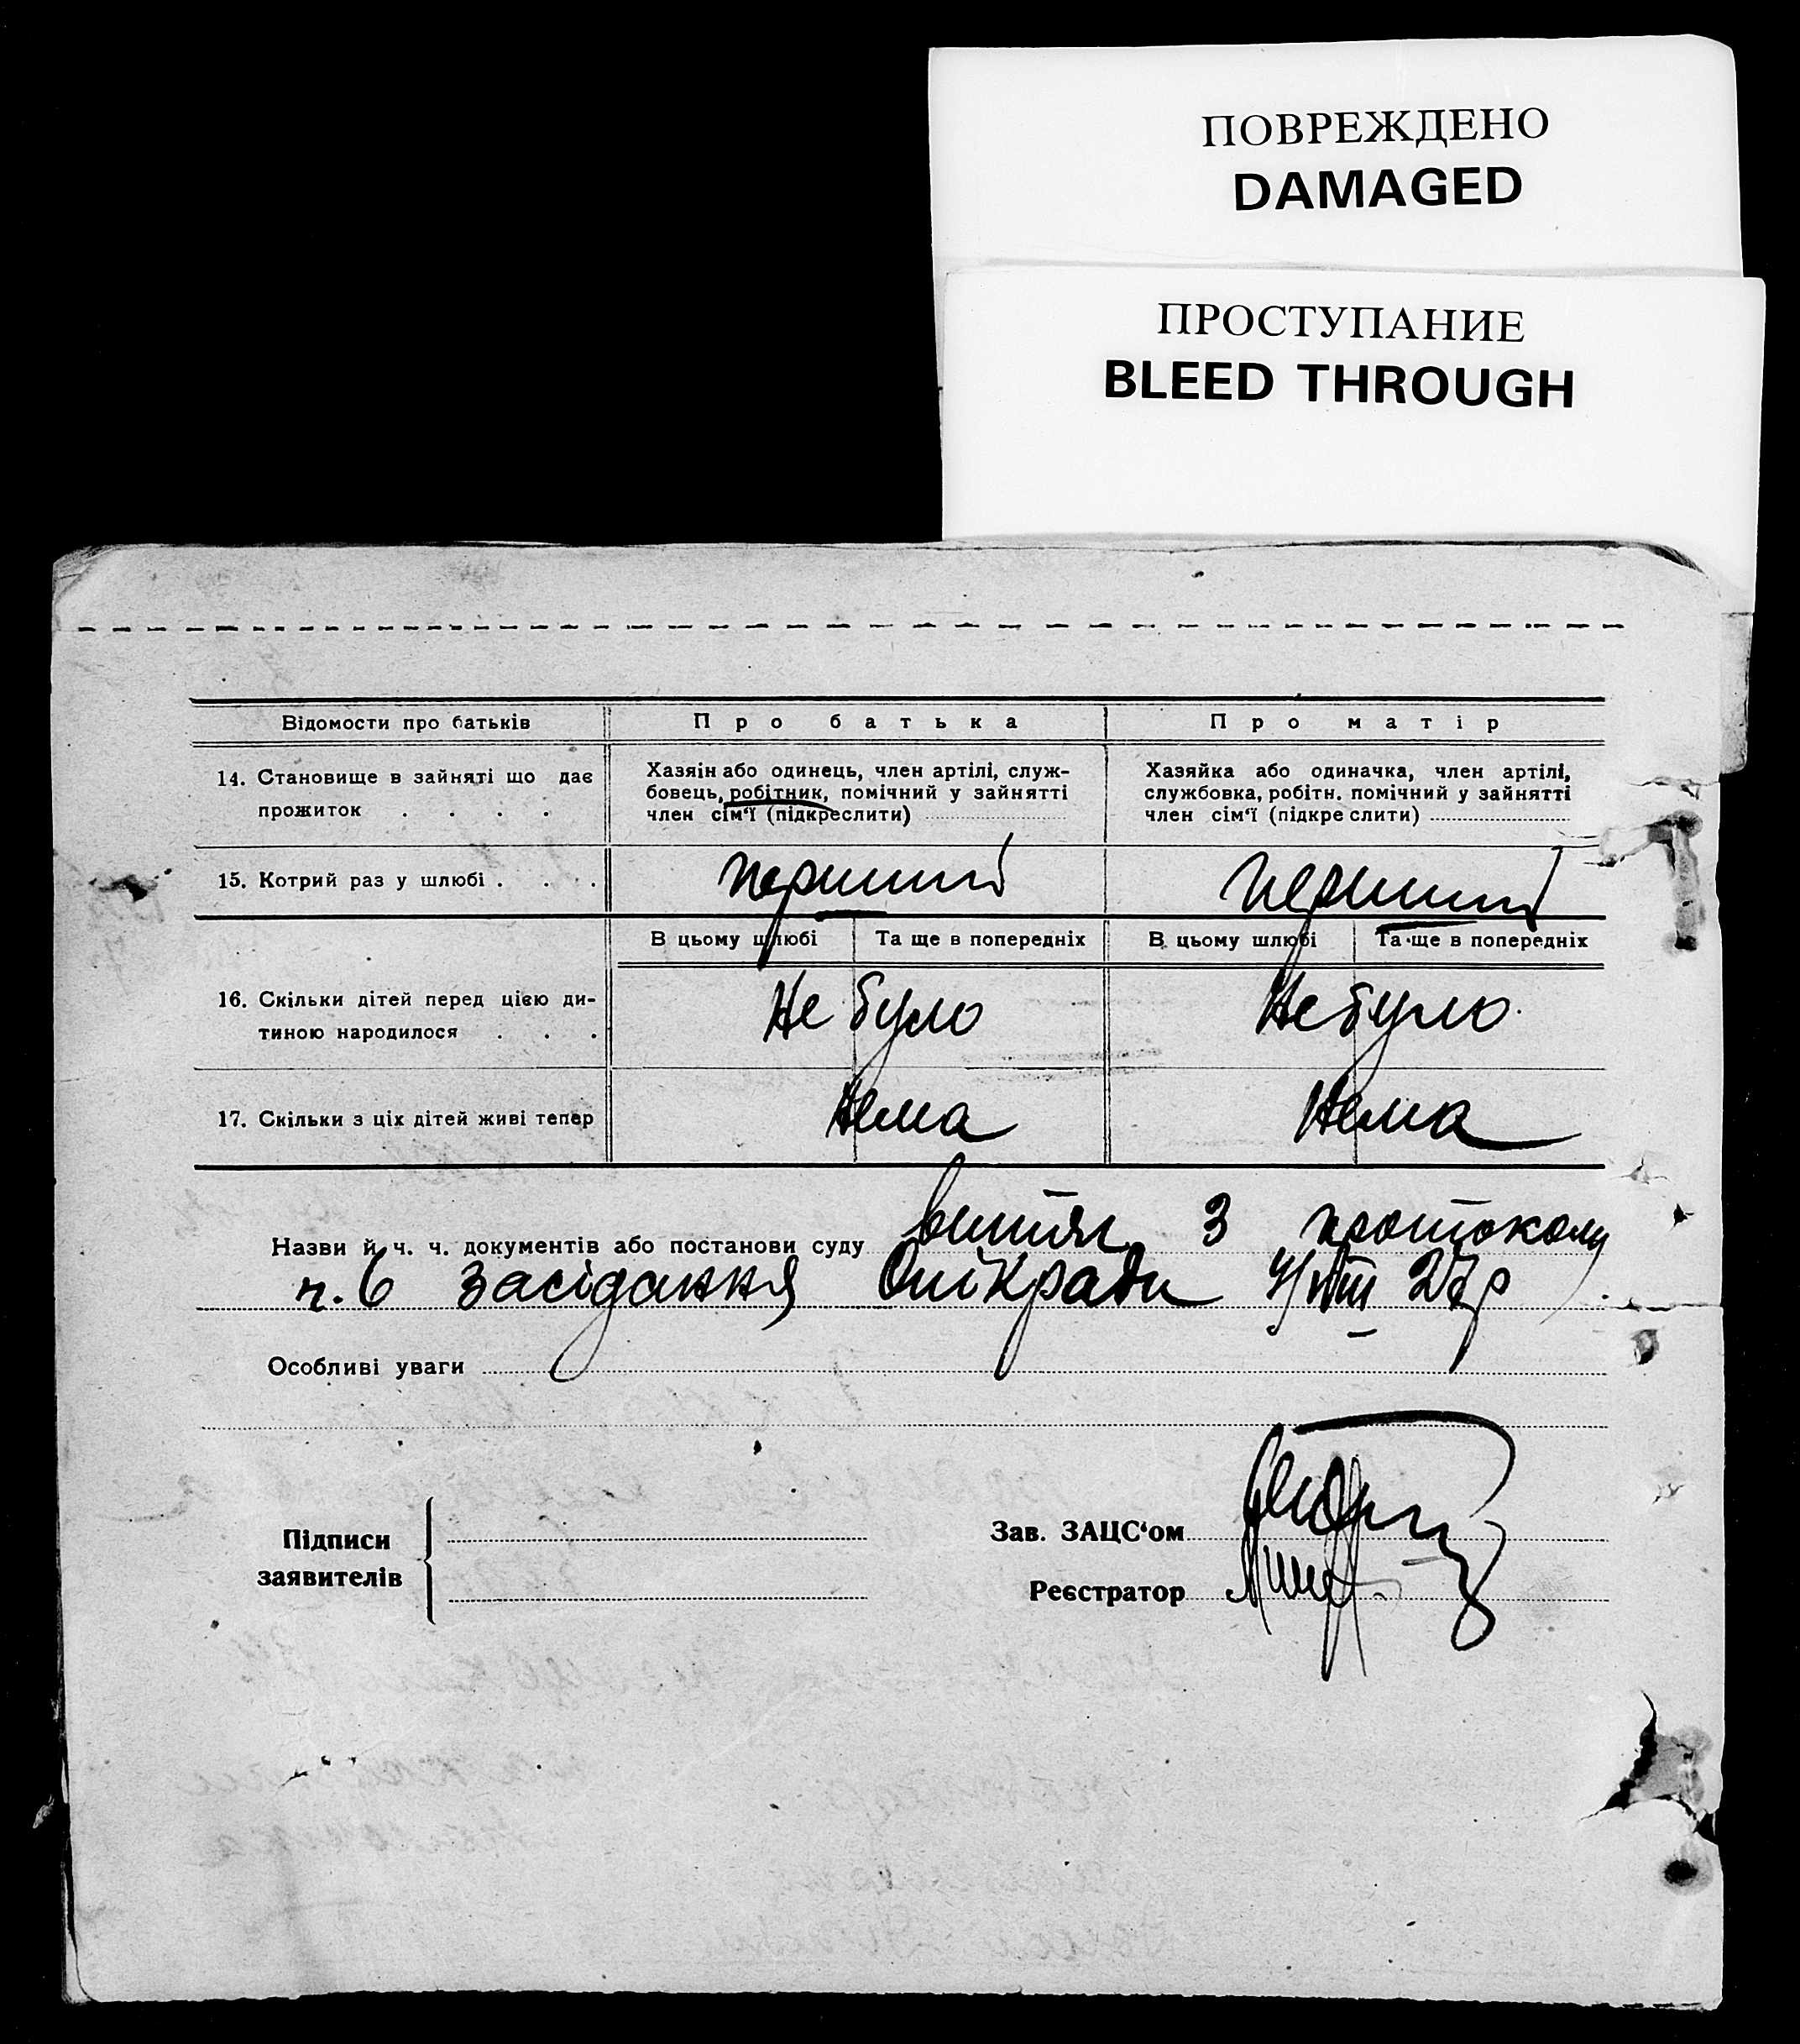 ПОВРЕЖДЕНО
DAMAGED
ПРОСТУПАНИЕ
BLEED THROUGH
Відомости про батьків
Про батька
Про матір
14. Становище в зайняті що дає
прожиток . . . .
Хазяін або одинець, член артілі, служ-
бовець, робітник, помічний у зайнятті
член сім‘ї (підкреслити)
Хазяйка або одиначка, член артілі,
службовка, робітн. помічний у зайнятті
член сім‘ї (підкре слити)
15. Котрий раз у шлюбі . . .
перший
перший
В цьому шлюбі
Та ще в попередніх
В цьому шлюбі
Та ще в попередніх
16. Скільки дітей перед цією ди-
тиною народилося . . .
Не було
Не було.
17. Скільки з ціх дітей живі тепер
Нема
Нема
Назви й ч. ч. документів або постанови суду витяг з протоколу
ч. 6 засідання Опікради 4/VIII 27р
Особливі уваги
Підписи
заявителів
Зав. ЗАЦС‘ом
Реєстратор